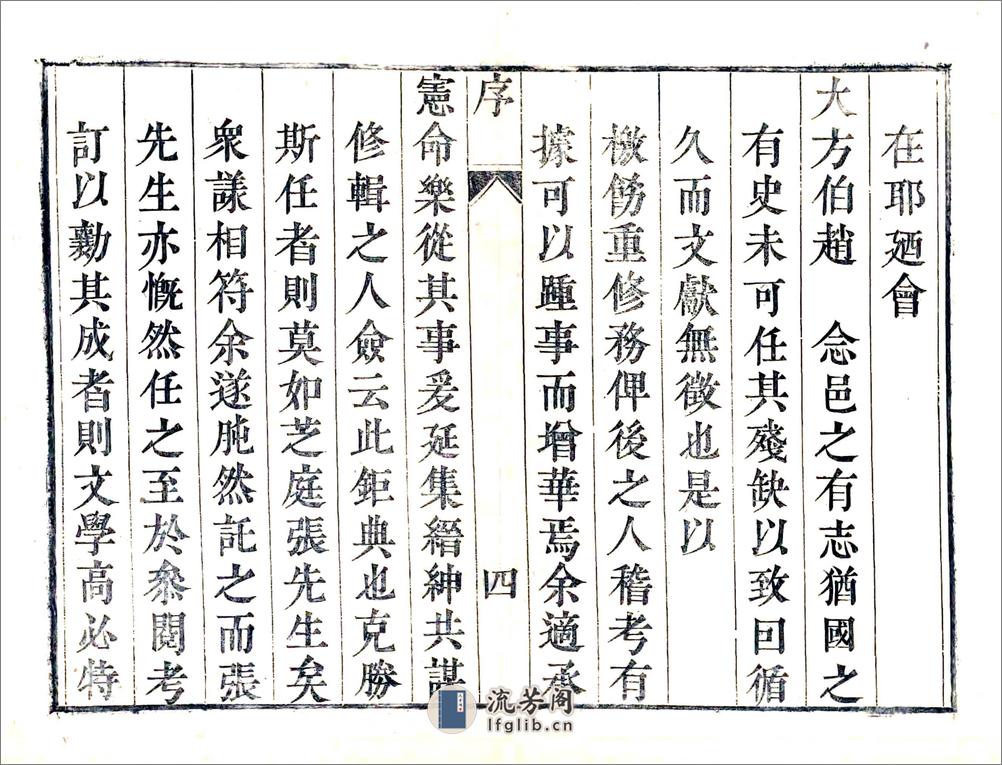 在耶廼會
大方伯趙 念邑之有志猶國之
有史未可任其殘缺以致因循
久而文獻無徵也是以
檄飭重修務俾後之人稽考有
據可以踵事而增華焉余適承
序 四
憲命樂從其事爰延集縉紳共謀
修輯之人僉云此鉅典也克勝
斯任者則莫如芝庭張先生矣
衆議相符余遂肫然託之而張
先生亦慨然任之至於叅閱考
訂以勷其成者則文學高必特
流芳阁
lfglib.cn